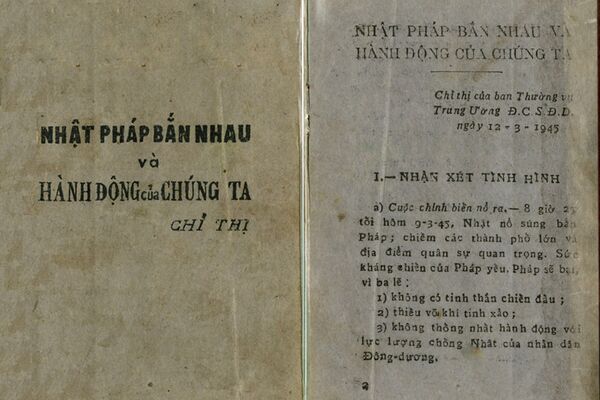 NHẬT PHÁP BẮN NHAU
và
HÀNH ĐỘNG của CHÚNG TA
CHỈ THỊ
NHẬT PHÁP BẮN NHAU VÀ
HÀNH ĐỘNG CỦA CHÚNG TA
Chỉ thị của ban Thường vụ
Trung Ương Đ.C.S.Đ.D.
ngày 12-3-1945
I.— NHẬN XÉT TÌNH HÌNH
a) Cuộc chính biến nổ ra.— 8 giờ
tối hôm 9-3-45, Nhật nổ súng bắn
Pháp; chiếm các thành phố lớn và
địa điểm quân sự quan trọng. Sức
kháng chiến của Pháp yếu, Pháp sẽ bại,
vì ba lẽ :
1) không có tinh thần chiến đấu ;
2) thiếu võ khí tinh xảo ;
3) không thống nhất hành động với
lực lượng chống Nhật của nhân dân
Đông-dương.
2